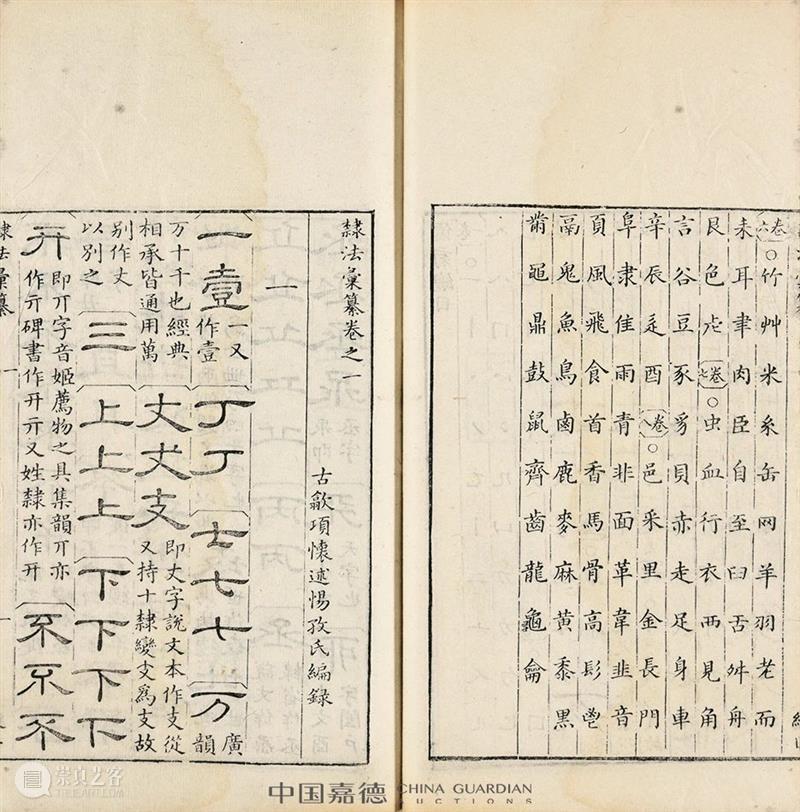 卷六○竹艸米糸缶网羊羽老而
耒耳聿肉臣自至臼舌舛舟
艮色虍卷七○虫血行衣襾見角
言谷豆豕豸貝赤走足身車
辛辰辵酉卷八○邑釆里金長門
阜隶隹雨青非面革韋韭音
頁風飛食首香馬骨高髟鬯
鬲鬼魚鳥鹵鹿麥麻黃黍黑
黹黽鼎鼓鼠齊齒龍龜龠
隸法彙纂卷之一
古歙項懷述惕孜氏編錄
一
一壹一又作壹丁丁七七七万廣韻
万十千也經典相承皆通用萬丈丈支即丈字說文本作支從又持十隸變支爲支故
別作丈以別之三上上上下下下下
丌即丌字音姬薦物之具集韻丌亦作亓碑書作开亓又姓隸亦作开不不不
隸法彙纂
一
中国嘉德
CHINA GUARDIAN
AUCTIONS
崇真艺客